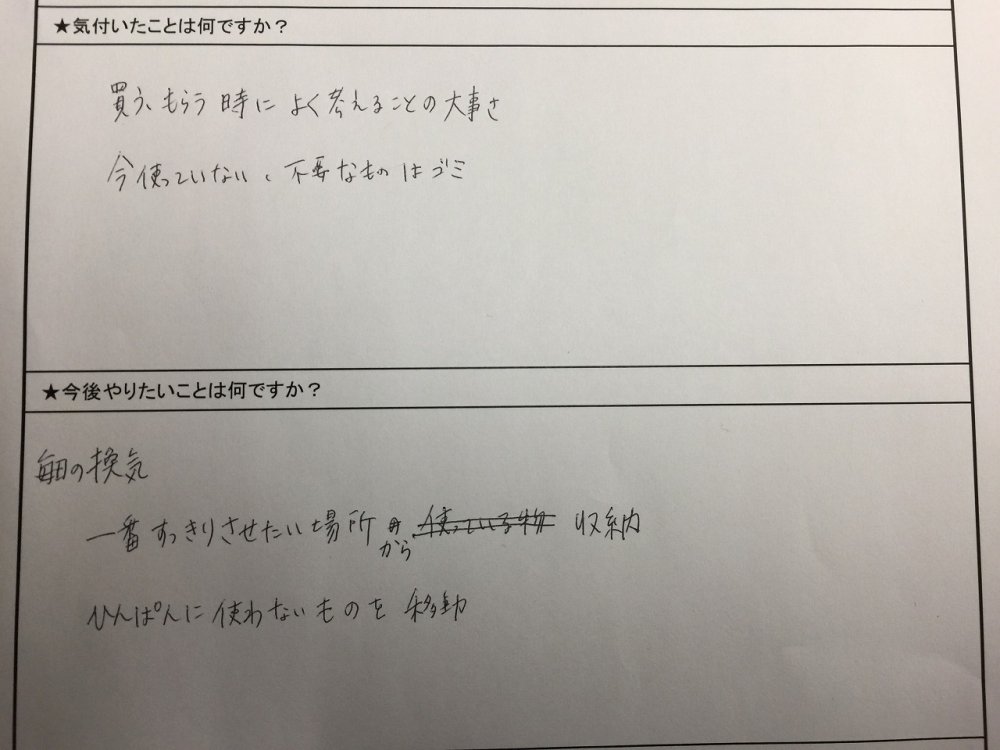 ★気付いたことは何ですか？
買う、もらう時によく考えることの大事さ
今使っていない、不要なものはゴミ
★今後やりたいことは何ですか？
毎日の換気
一番すっきりさせたい場所から 使っている物 収納
ひんぱんに使わないものを移動